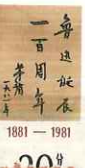 鲁迅诞辰
一百周年
茅盾
一九八一年
1881—1981
20分